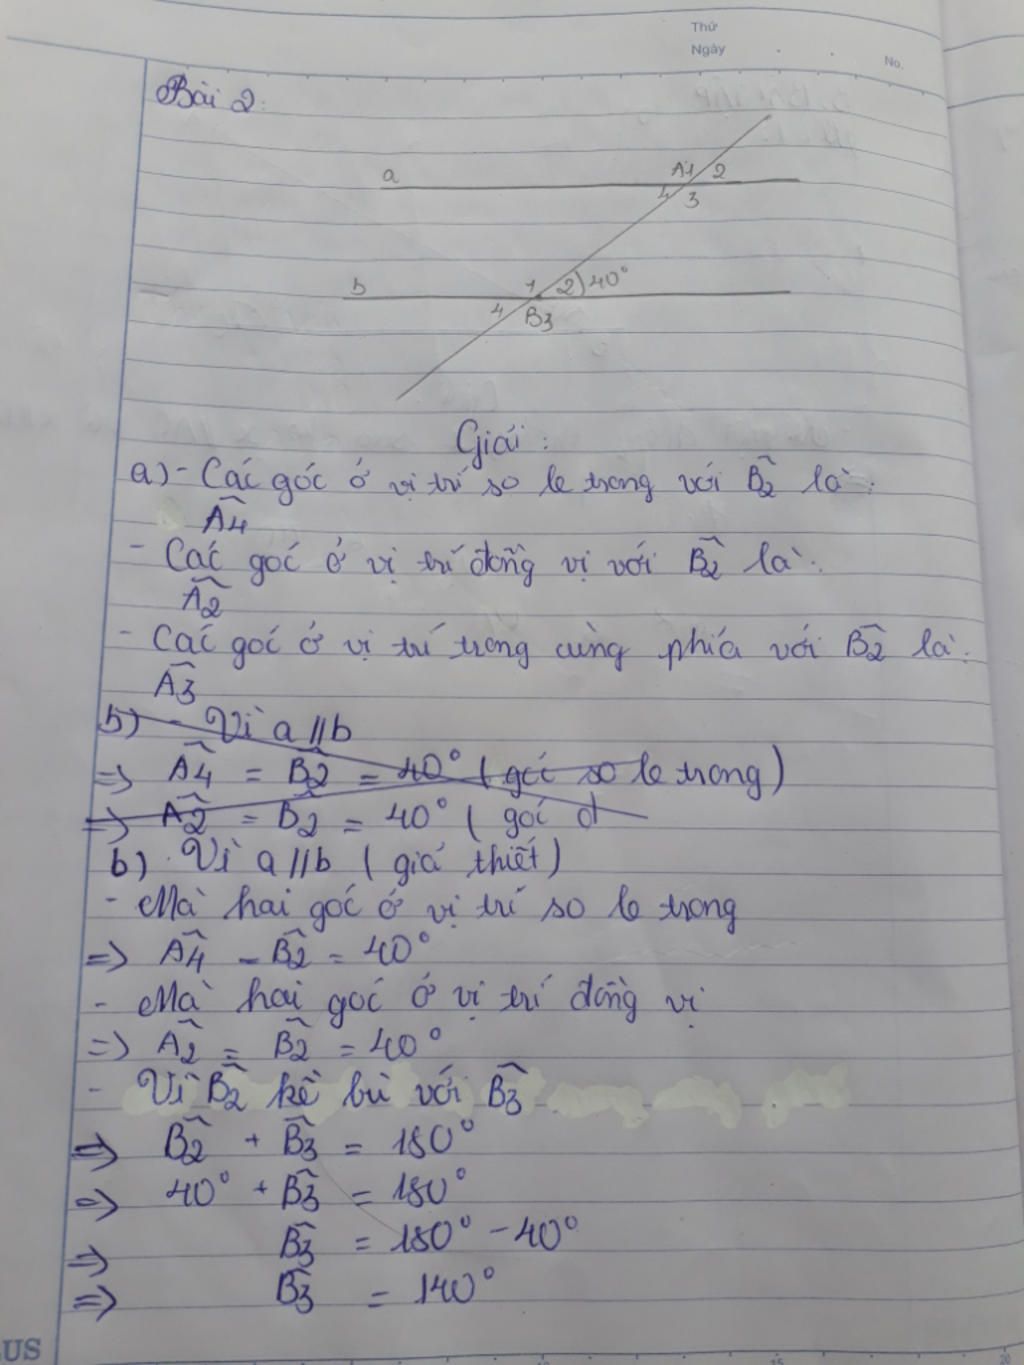 Thứ
Ngày
No.
Bài 2:
a
A1 2
4 3
b
1 2 40°
4 B3
Giải:
a) - Các góc ở vị trí so le trong với B̂2 là:
Â4
- Các góc ở vị trí đồng vị với B̂2 là:
Â2
- Các góc ở vị trí trong cùng phía với B̂2 là:
Â3
b) - Vì a // b
=> Â4 = B̂2 = 40° (góc so le trong)
=> Â2 = B̂2 = 40° ( góc đ
b) Vì a // b ( giả thiết)
- Mà hai góc ở vị trí so le trong
=> Â4 = B̂2 = 40°
- Mà hai góc ở vị trí đồng vị
=> Â2 = B̂2 = 40°
- Vì B̂2 kề bù với B̂3
=> B̂2 + B̂3 = 180°
=> 40° + B̂3 = 180°
=> B̂3 = 180° - 40°
=> B̂3 = 140°
US